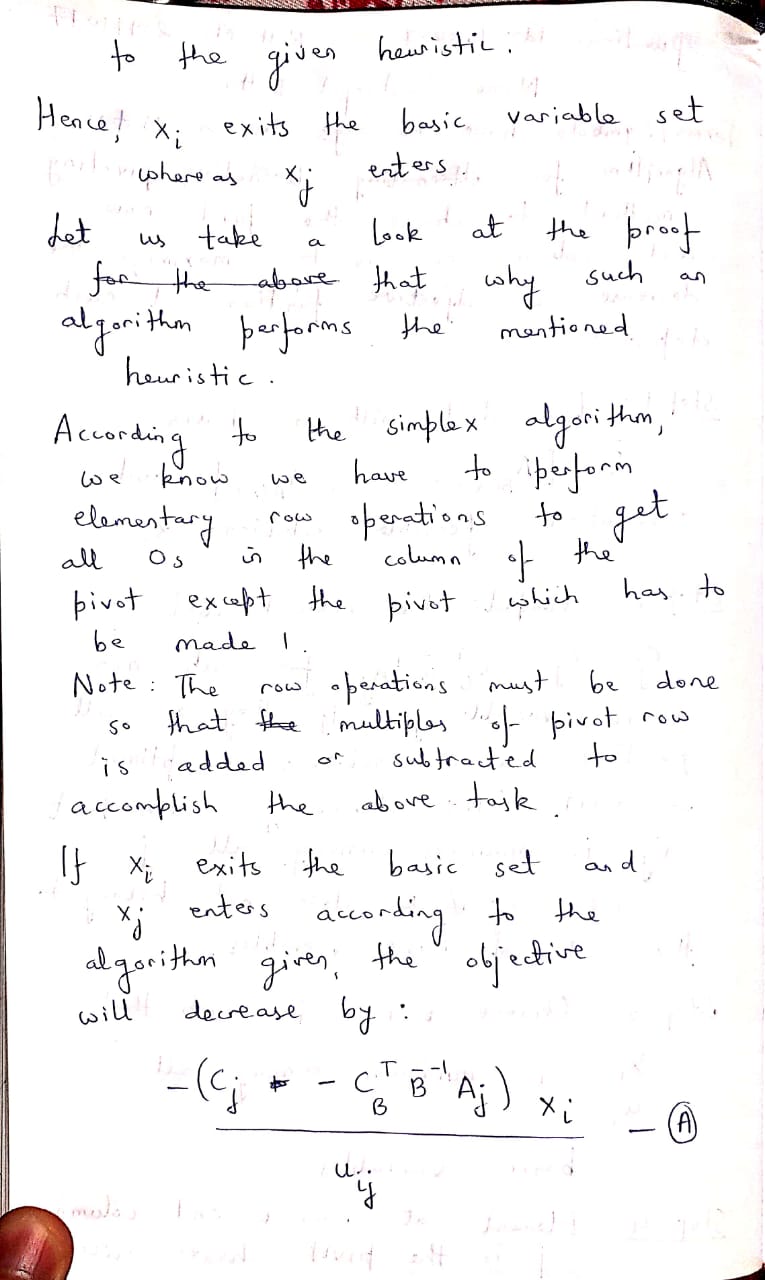 to the given heuristic.
Hence, x_i exits the basic variable set
where as x_j enters.
Let us take a look at the proof
for the above that why such an
algorithm performs the mentioned
heuristic.
According to the simplex algorithm,
we know we have to perform
elementary row operations to get
all 0s in the column of the
pivot except the pivot which has to
be made 1.
Note : The row operations must be done
so that the multiples of pivot row
is added or subtracted to
accomplish the above task.
If x_i exits the basic set and
x_j enters according to the
algorithm given, the objective
will decrease by :
-(C_j - C_B^T B^-1 A_j) x_i - (A)
u_ij